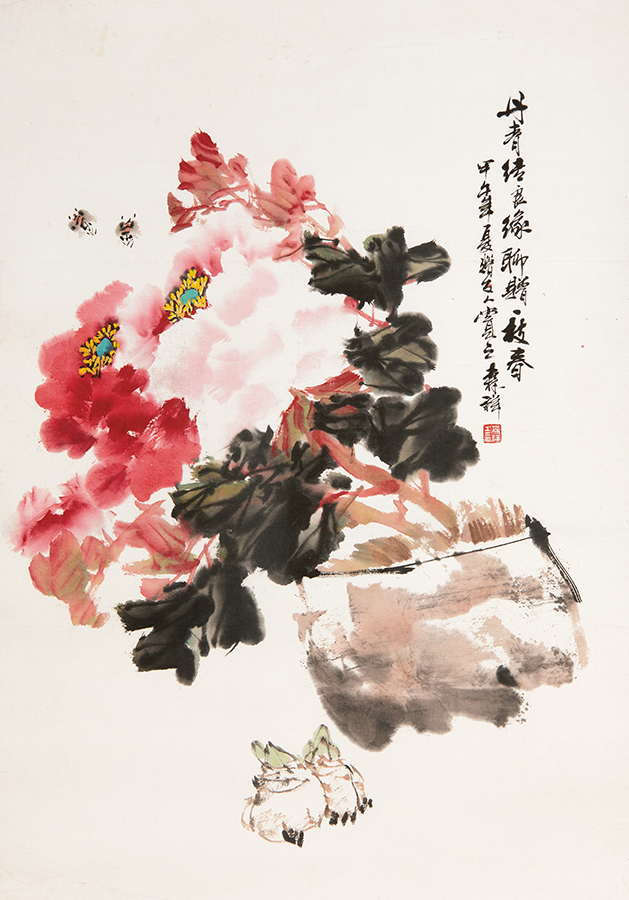 丹青结良缘聊赠·秋春
甲午年夏赠友人賞之 森祥